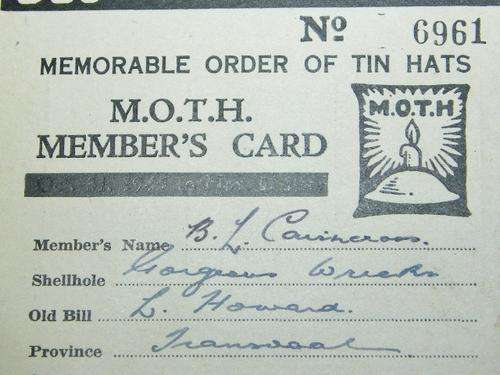 No 6961
MEMORABLE ORDER OF TIN HATS
M.O.T.H.
MEMBER'S CARD
M.O.T.H
Member's Name B. L. Cairncross.
Shellhole Gorgeous Wrecks
Old Bill L. Howard.
Province Transvaal